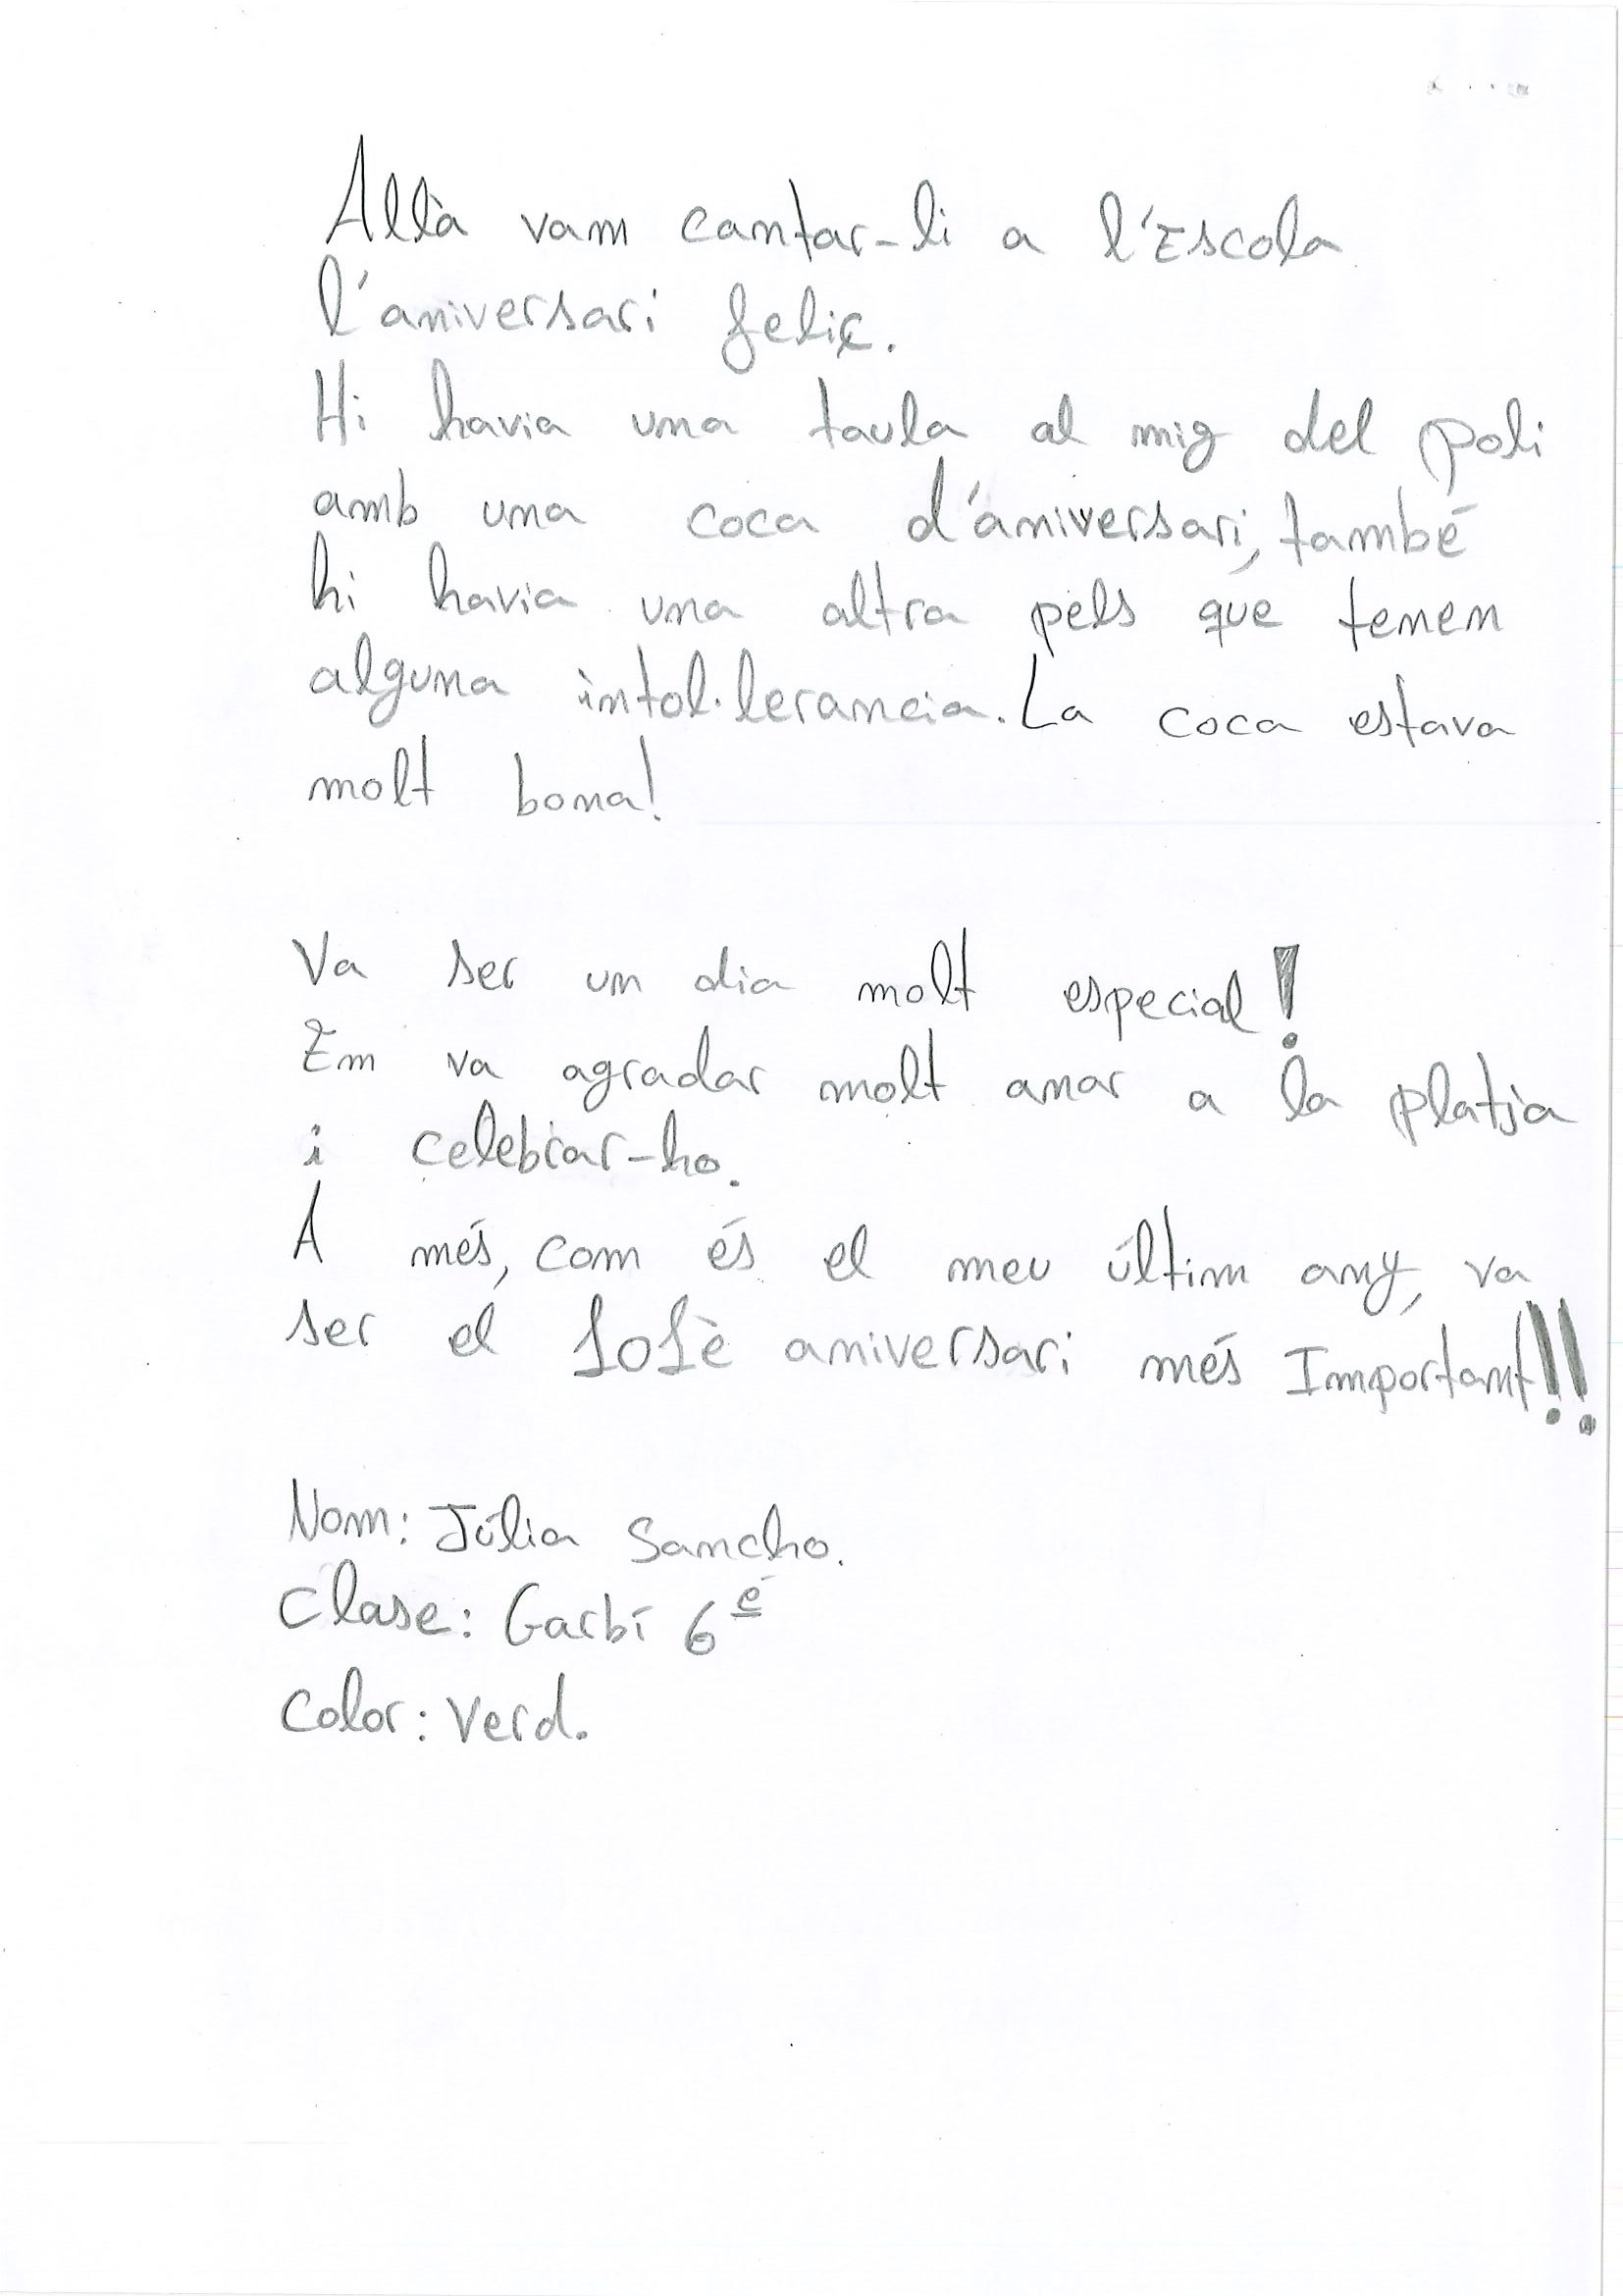 Allà vam cantar-li a l'Escola
l'aniversari feliç.
Hi havia una taula al mig del poli
amb una coca d'aniversari, també
hi havia una altra pels que tenen
alguna intol·lerancia. La coca estava
molt bona!
Va ser un dia molt especial!
Em va agradar molt anar a la platja
i celebrar-ho.
A més, com és el meu últim any, va
ser el 101è aniversari més Important!!
Nom: Júlia Sancho.
Clase: Garbí 6é
Color: Verd.